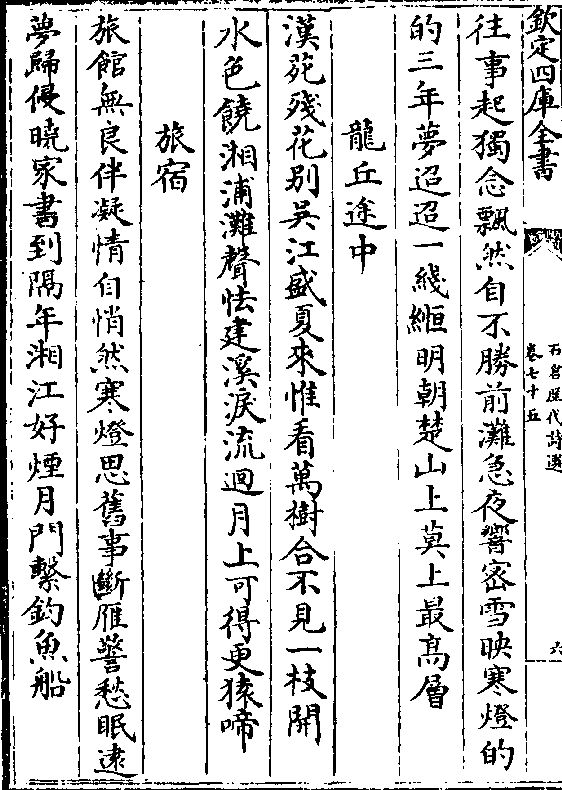 欽定四庫全書
石倉歷代詩選
卷七十五
六
往事起獨念飄然自不勝前灘急夜響密雪映寒燈的
的三年夢迢迢一綫縆明朝楚山上莫上最高層
龍丘途中
漢苑殘花别吳江盛夏來惟看萬樹合不見一枝開
水色饒湘浦灘聲怯建溪淚流迴月上可得更猿啼
旅宿
旅館無良伴凝情自悄然寒燈思舊事斷雁警愁眠逺
夢歸侵曉家書到隔年湘江好煙月門繫釣魚船